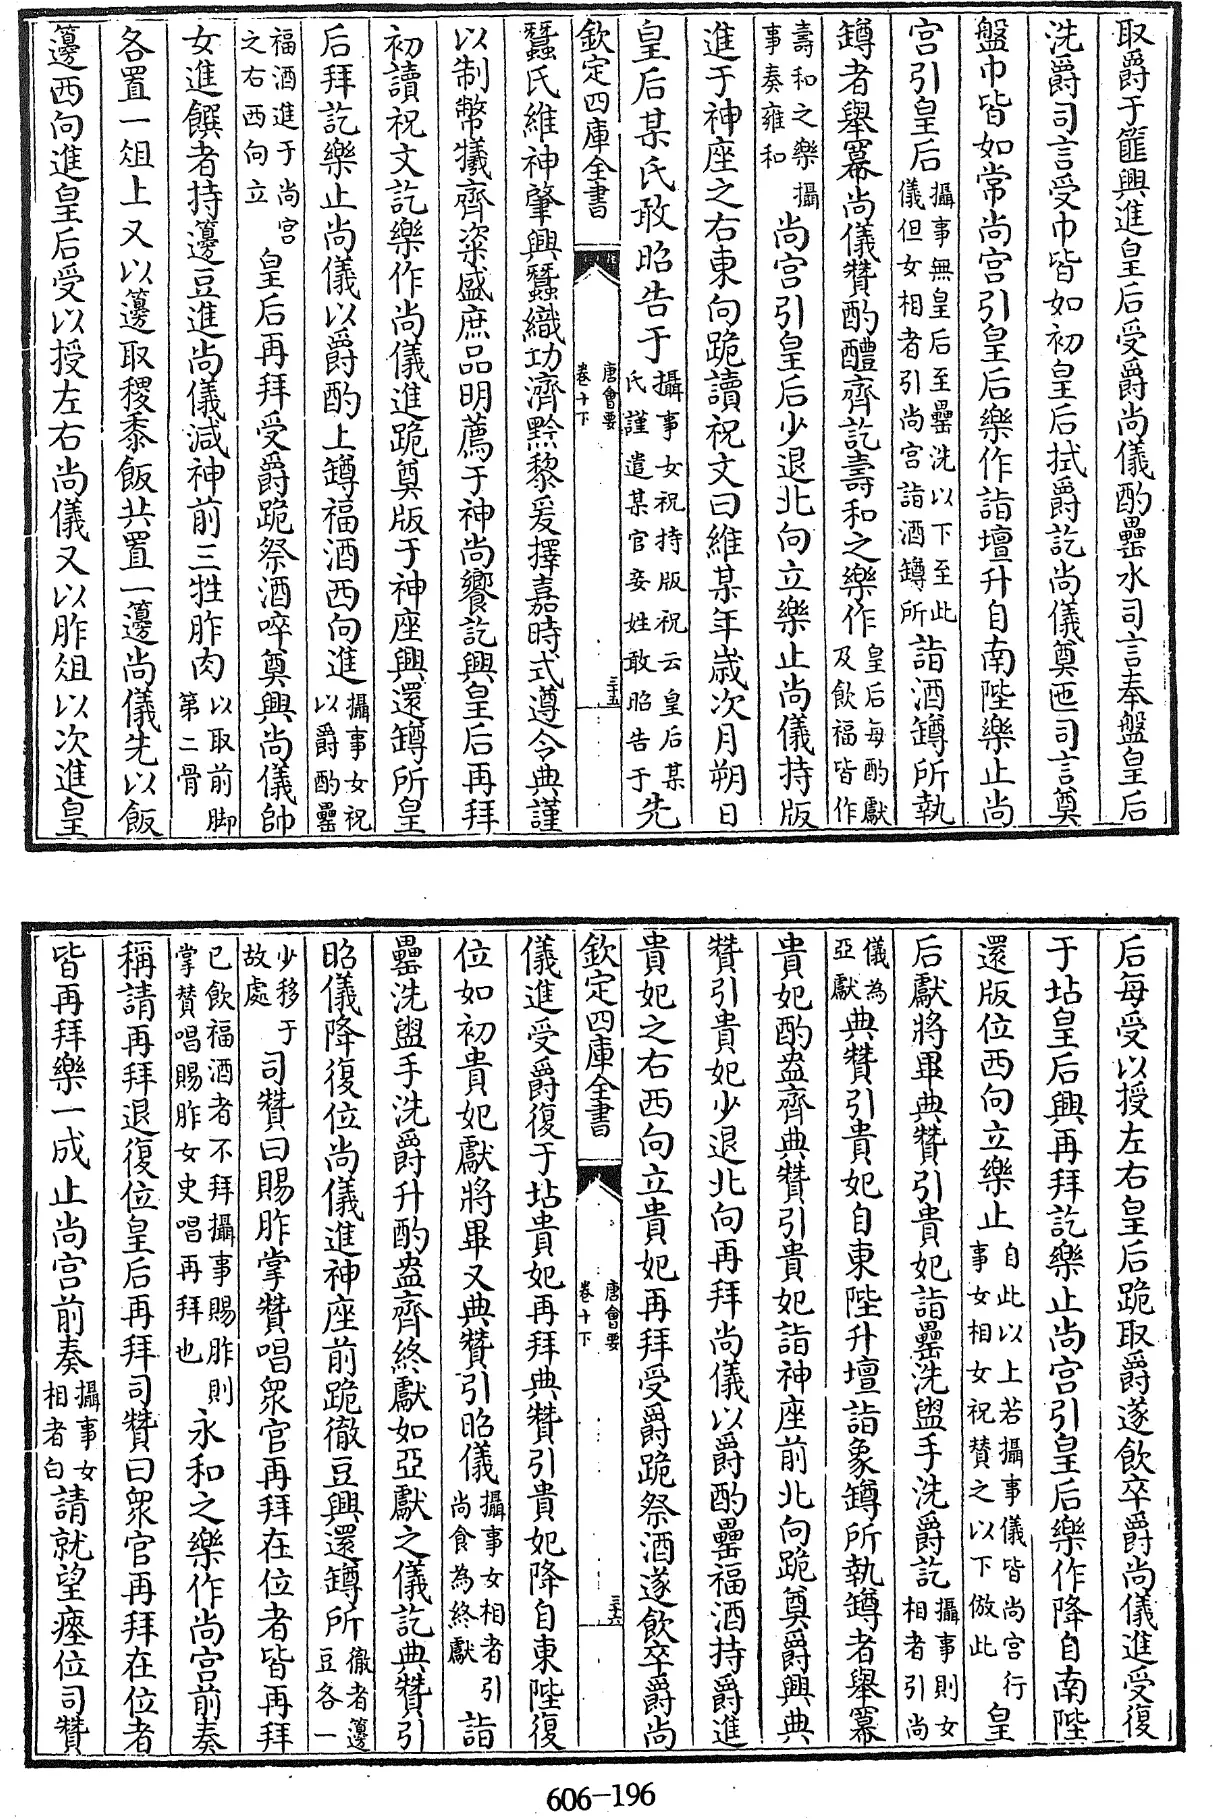 取爵于篚興進皇后受爵尚儀酌罍水司言奉盤皇后
洗爵司言受巾皆如初皇后拭爵訖尚儀奠匜司言奠
盤巾皆如常尚宫引皇后樂作詣壇升自南陛樂止尚
宫引皇后攝事無皇后至罍洗以下至此儀但女相者引尚宫詣酒罇所詣酒罇所執
罇者舉冪尚儀贊酌醴齊訖壽和之樂作皇后每酌獻及飲福皆作
壽和之樂攝事奏雍和尚宫引皇后少退北向立樂止尚儀持版
進于神座之右東向跪讀祝文曰維某年歲次月朔日
皇后某氏敢昭告于攝事女祝持版祝云皇后某氏謹遣某官妾姓敢昭告于先
欽定四庫全書
唐會要
卷十下
三十五
蠶氏維神肇興蠶織功濟黔黎爰擇嘉時式遵令典謹
以制幣犧齊粢盛庶品明薦于神尚饗訖興皇后再拜
初讀祝文訖樂作尚儀進跪奠版于神座興還罇所皇
后拜訖樂止尚儀以爵酌上罇福酒西向進攝事女祝以爵酌罍
福酒進于尚宫之右西向立皇后再拜受爵跪祭酒啐奠興尚儀帥
女進饌者持籩豆進尚儀減神前三牲胙肉以取前脚第二骨
各置一俎上又以籩取稷黍飯共置一籩尚儀先以飯
籩西向進皇后受以授左右尚儀又以胙俎以次進皇
后每受以授左右皇后跪取爵遂飲卒爵尚儀進受復
于坫皇后興再拜訖樂止尚宫引皇后樂作降自南陛
還版位西向立樂止自此以上若攝事儀皆尚宫行事女相女祝贊之以下倣此皇
后獻將畢典贊引貴妃詣罍洗盥手洗爵訖攝事則女相者引尚
儀為亞獻典贊引貴妃自東陛升壇詣象罇所執罇者舉冪
貴妃酌盎齊典贊引貴妃詣神座前北向跪奠爵興典
贊引貴妃少退北向再拜尚儀以爵酌罍福酒持爵進
貴妃之右西向立貴妃再拜受爵跪祭酒遂飲卒爵尚
欽定四庫全書
唐會要
卷十下
三十六
儀進受爵復于坫貴妃再拜典贊引貴妃降自東陛復
位如初貴妃獻將畢又典贊引昭儀攝事女相者引尚食為終獻詣
罍洗盥手洗爵升酌盎齊終獻如亞獻之儀訖典贊引
昭儀降復位尚儀進神座前跪徹豆興還罇所徹者籩豆各一
少移于故處司贊曰賜胙掌贊唱衆官再拜在位者皆再拜
已飲福酒者不拜攝事賜胙則掌贊唱賜胙女史唱再拜也永和之樂作尚宫前奏
稱請再拜退復位皇后再拜司贊曰衆官再拜在位者
皆再拜樂一成止尚宫前奏攝事女相者白請就望瘞位司贊
606-196